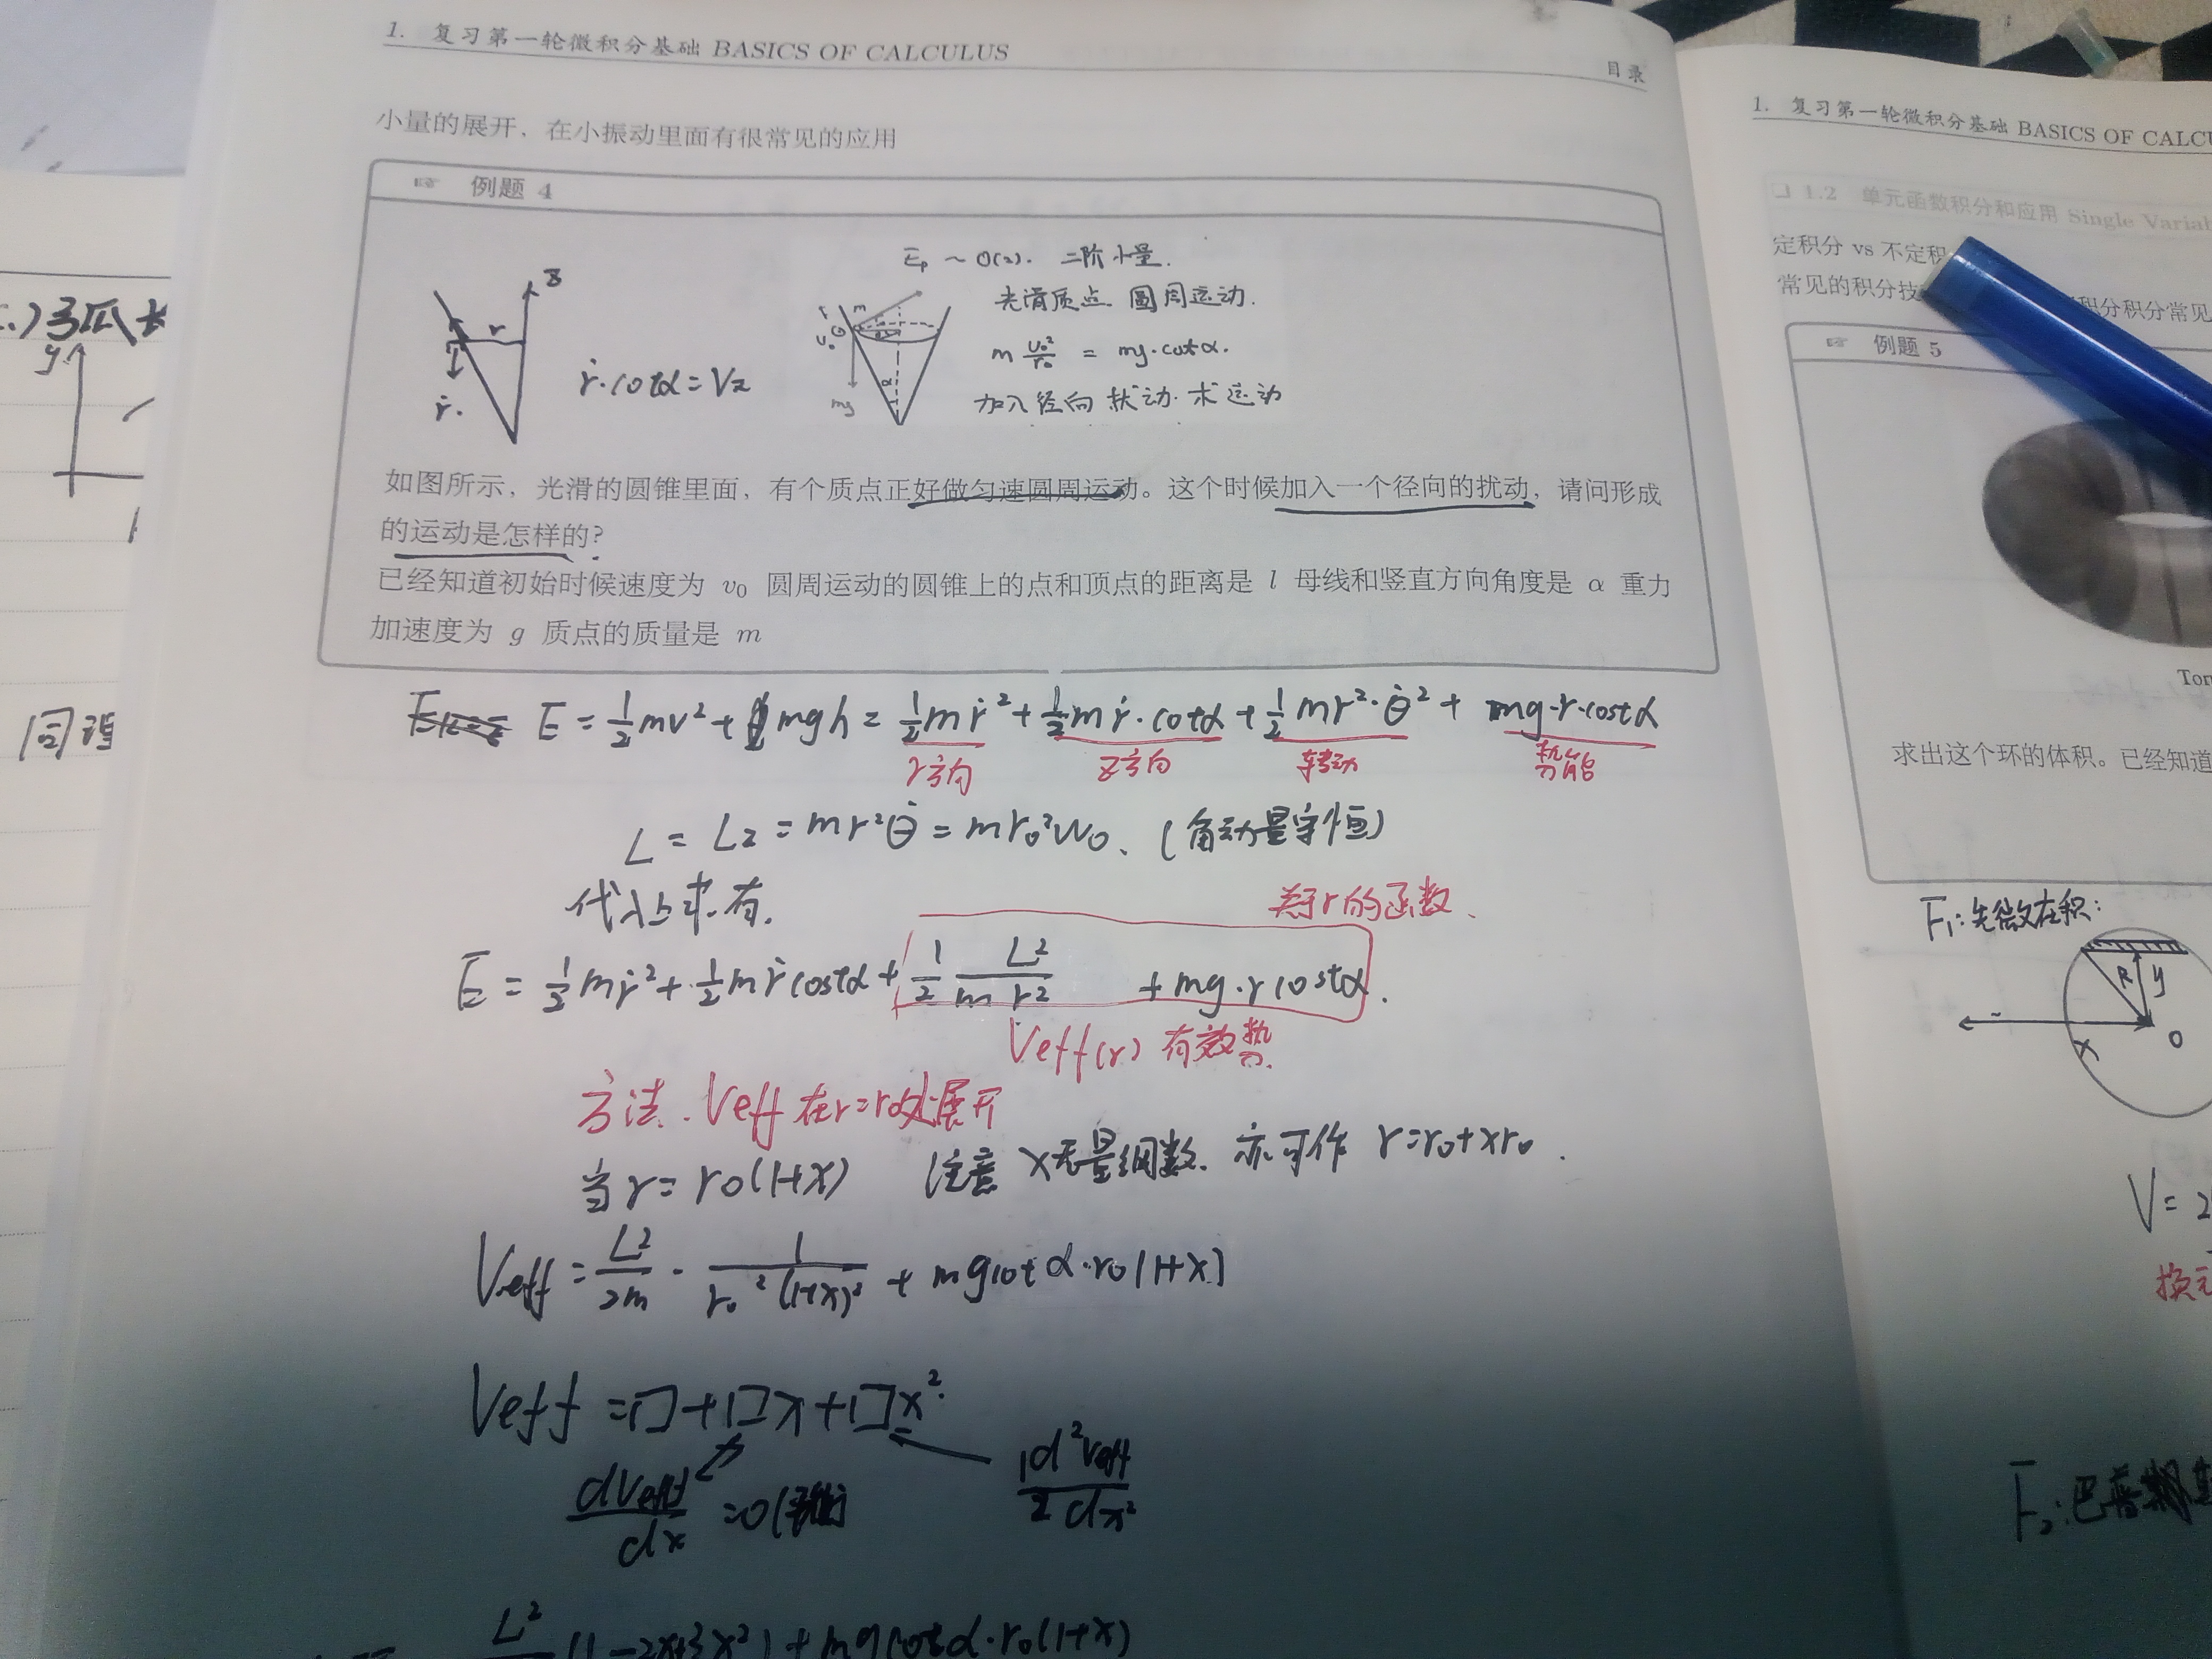 1. 复习第一轮微积分基础 BASICS OF CALCULUS
目录
小量的展开，在小振动里面有很常见的应用
例题 4
Z
r
ṙ.
ṙ·cotα=Vz
Ep ~ O(2). 二阶小量.
光滑质点 圆周运动.
m v₀²/r₀ = mg·cotα.
加入径向扰动·求运动
r
m
v₀
α
mg
如图所示，光滑的圆锥里面，有个质点正好做匀速圆周运动。这个时候加入一个径向的扰动，请问形成
的运动是怎样的?
已经知道初始时候速度为 v₀ 圆周运动的圆锥上的点和顶点的距离是 l 母线和竖直方向角度是 α 重力
加速度为 g 质点的质量是 m
E = ½mv² + mgh = ½mṙ² + ½mṙ·cotα + ½mr²·θ̇² + mg·r·costα
r方向 z方向 转动 势能
L = Lz = mr²θ̇ = mr₀²w₀. (角动量守恒)
代入上式.有.
关于r的函数、
E = ½mṙ² + ½mṙcostα + 1/2 L²/m r² + mg·r costα.
Veff(r) 有效势.
方法. Veff 在r=r₀处展开
当 r = r₀(1+x) (注意 x无量纲数. 亦可作 r=r₀+xr₀.
Veff = L²/2m · 1/r₀²(1+x)² + mgcotα·r₀(1+x)
Veff =[]+[]x+[]x².
dVeff/dx =0
1 d²Veff/2 dx²
L² (1-2x+3x²)+mgcotα·r₀(1+x)
y
同理
1. 复习第一轮微积分基础 BASICS OF CALCU
1.2 单元函数积分和应用 Single Variab
定积分 vs 不定积
常见的积分技
积分积分常见
例题 5
Tor
求出这个环的体积。已经知道
F₁:先微在积:
R
y
x
O
V= 2
换元
F₂:巴普